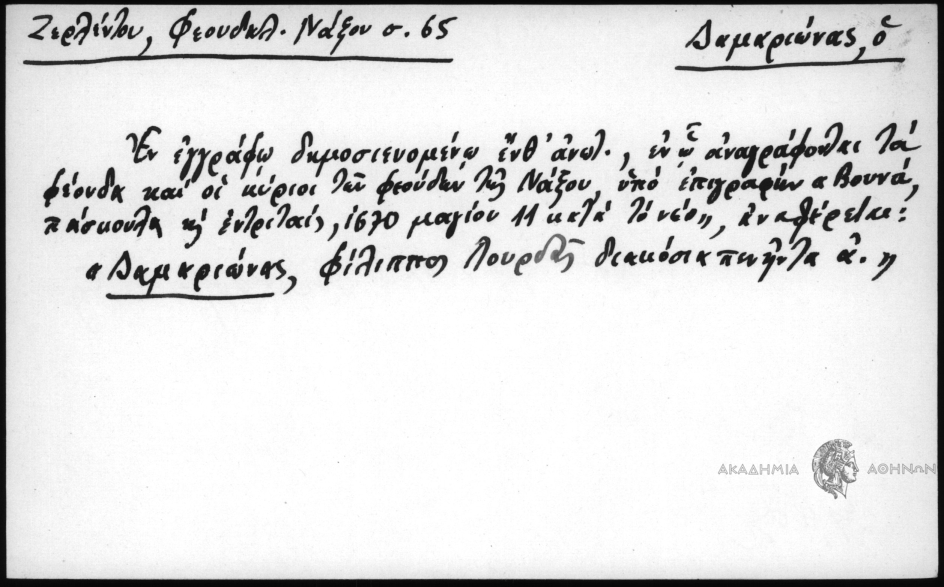 Ζερλέντου, Φεουδαλ. Νάξου σ. 65
Δαμαριώνας, ὁ
Ἐν ἐγγράφῳ δημοσιευομένῳ ἔνθ' ἀνωτ., ἐν ᾧ ἀναγράφονται τὰ
φέουδα καὶ οἱ κύριοι τῶν φεούδων τῆς Νάξου, ὑπὸ ἐπιγραφὴν «Βουνά,
πάσκουλα κὴ ἐντριταίς, 1670 μαγίου 11 κατὰ τὸ νέο», ἀναφέρεται:
«Δαμαριώνας, Φίλιππος διακόσια πενῆντα ἀ.»
ΑΚΑΔΗΜΙΑ ΑΘΗΝΩΝ